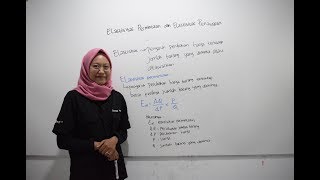 Elastisitas Permintaan dan Elastisitas Penawaran
Elastisitas → pengaruh perubahan harga terhadap
jumlah barang yang diminta atau
ditawarkan
Elastisitas permintaan
pengaruh perubahan harga barang terhadap
besar kecilnya jumlah barang yang diminta
Ed = ΔQ / ΔP × P / Q
Ed = elastisitas permintaan
ΔQ =
ΔP = perubahan harga
P = harga
Q = jumlah barang yang diminta